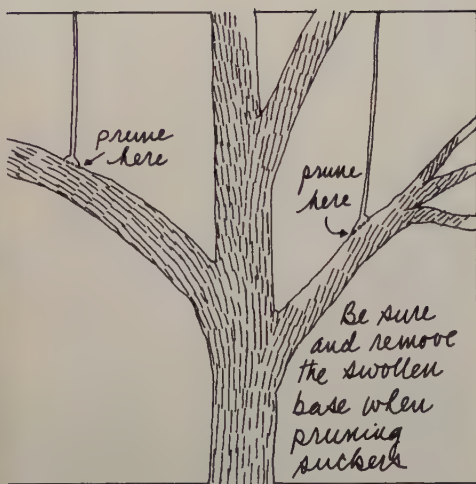 prune
here
prune
here
Be sure
and remove
the swollen
base when
pruning
suckers